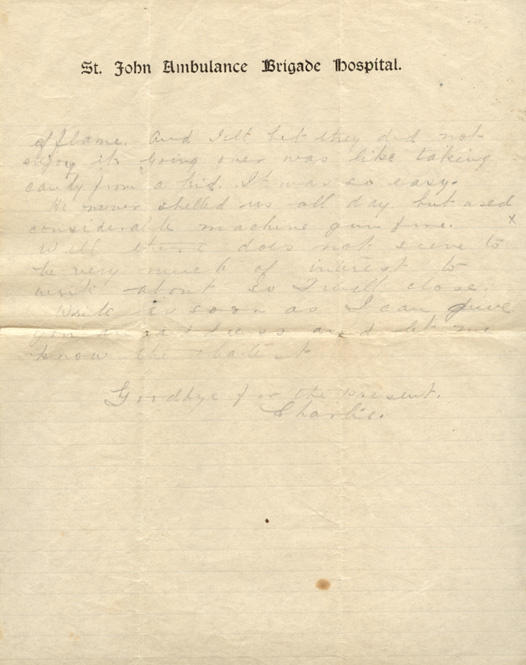 St. John Ambulance Brigade Hospital.
of flame. And I'll bet they did not
enjoy it. Going over was like taking
candy from a kid. It was so easy.
He never shelled us all day but used
considerable machine gun fire.
Well there does not seem to
be very much of interest to
write about so I will close.
Write as soon as I can give
you address and let me
know the
Goodbye for the present.
Charlie.